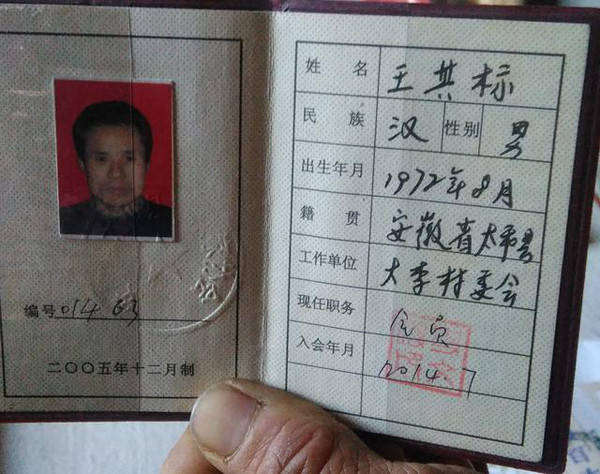 编号 01463
二〇〇五年十二月制
姓名 王其标
民族 汉 性别 男
出生年月 1972年8月
籍贯 安徽省太和县
工作单位 大李村委会
现任职务 会员
入会年月 2014.7